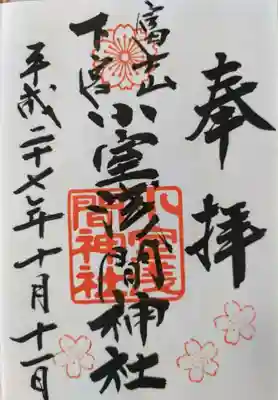 奉拝
富士山
下宮
小室浅間神社
平成二十七年十月十一日
小室浅間神社